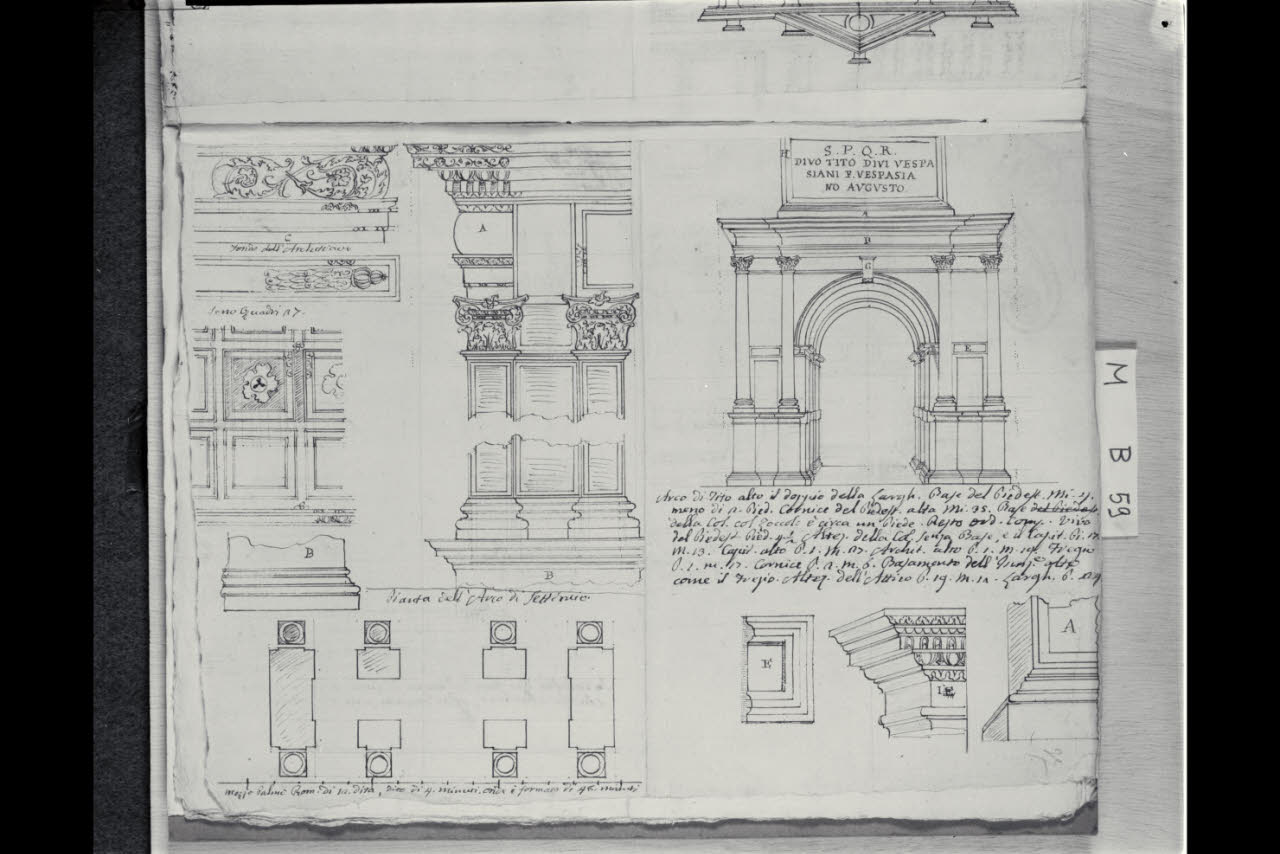 C
A
Sono Quadri 27.
B
B
Pianta dell'Arco di Settimio.
mezzo palmo Rom. di 12. dita, dito di 4. minuti. onde è formato di 48. minuti
H
S. P. Q. R.
DIVO TITO DIVI VESPA
SIANI F. VESPASIA
NO AVGVSTO
A
D
G
E
Arco di Tito alto il doppio della Largh. Base del Piedest. Mi.
meno di 2. Pied. Cornice del Piedest. alta Mi. 35. Base
della Col. col Zoccolo è circa un Piede. Resto ord. Comp. Vivo
del Piedest. Pied. Altez. della Col. senza Base, e il Capit. Pi. 17.
M. 13. Capit. alto P. 1. M. 27. Archit. alto P. 1. M. 19. Fregio
P. 1. m. 17. Cornice P. 2. m. 6. Basamento dell'
come il Fregio. Altez. dell'Attico P. 19. M. 12. Largh. P.
E
A
M B 59